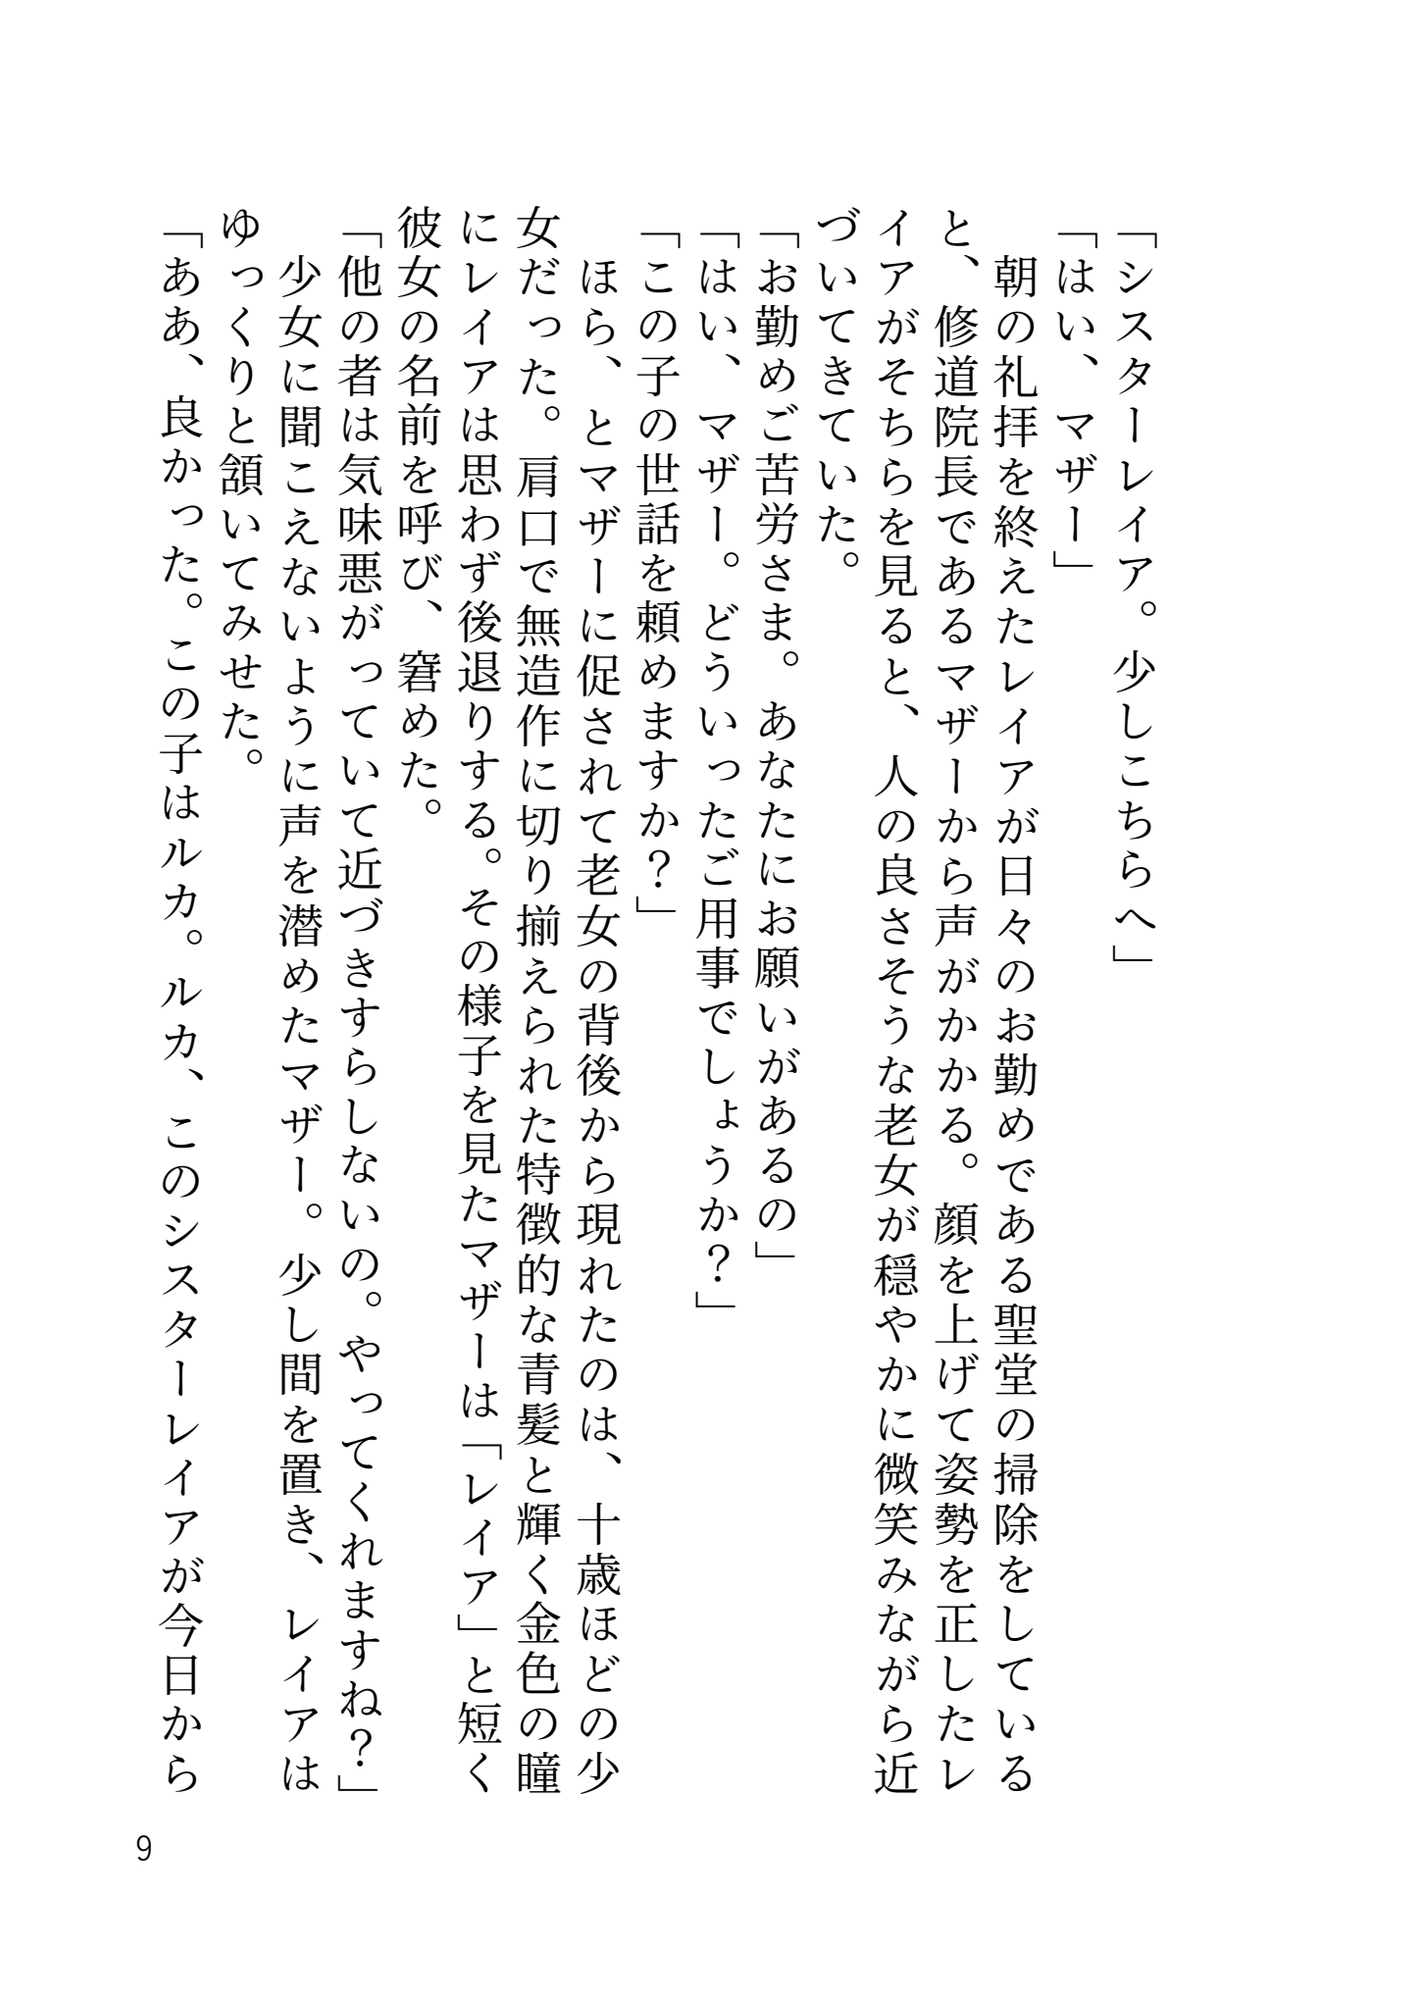 「シスターレイア。少しこちらへ」
「はい、マザー」
　朝の礼拝を終えたレイアが日々のお勤めである聖堂の掃除をしている
と、修道院長であるマザーから声がかかる。顔を上げて姿勢を正したレ
イアがそちらを見ると、人の良さそうな老女が穏やかに微笑みながら近
づいてきていた。
「お勤めご苦労さま。あなたにお願いがあるの」
「はい、マザー。どういったご用事でしょうか？」
「この子の世話を頼めますか？」
　ほら、とマザーに促されて老女の背後から現れたのは、十歳ほどの少
女だった。肩口で無造作に切り揃えられた特徴的な青髪と輝く金色の瞳
にレイアは思わず後退りする。その様子を見たマザーは「レイア」と短く
彼女の名前を呼び、窘めた。
「他の者は気味悪がっていて近づきすらしないの。やってくれますね？」
　少女に聞こえないように声を潜めたマザー。少し間を置き、レイアは
ゆっくりと頷いてみせた。
「ああ、良かった。この子はルカ。ルカ、このシスターレイアが今日から
9